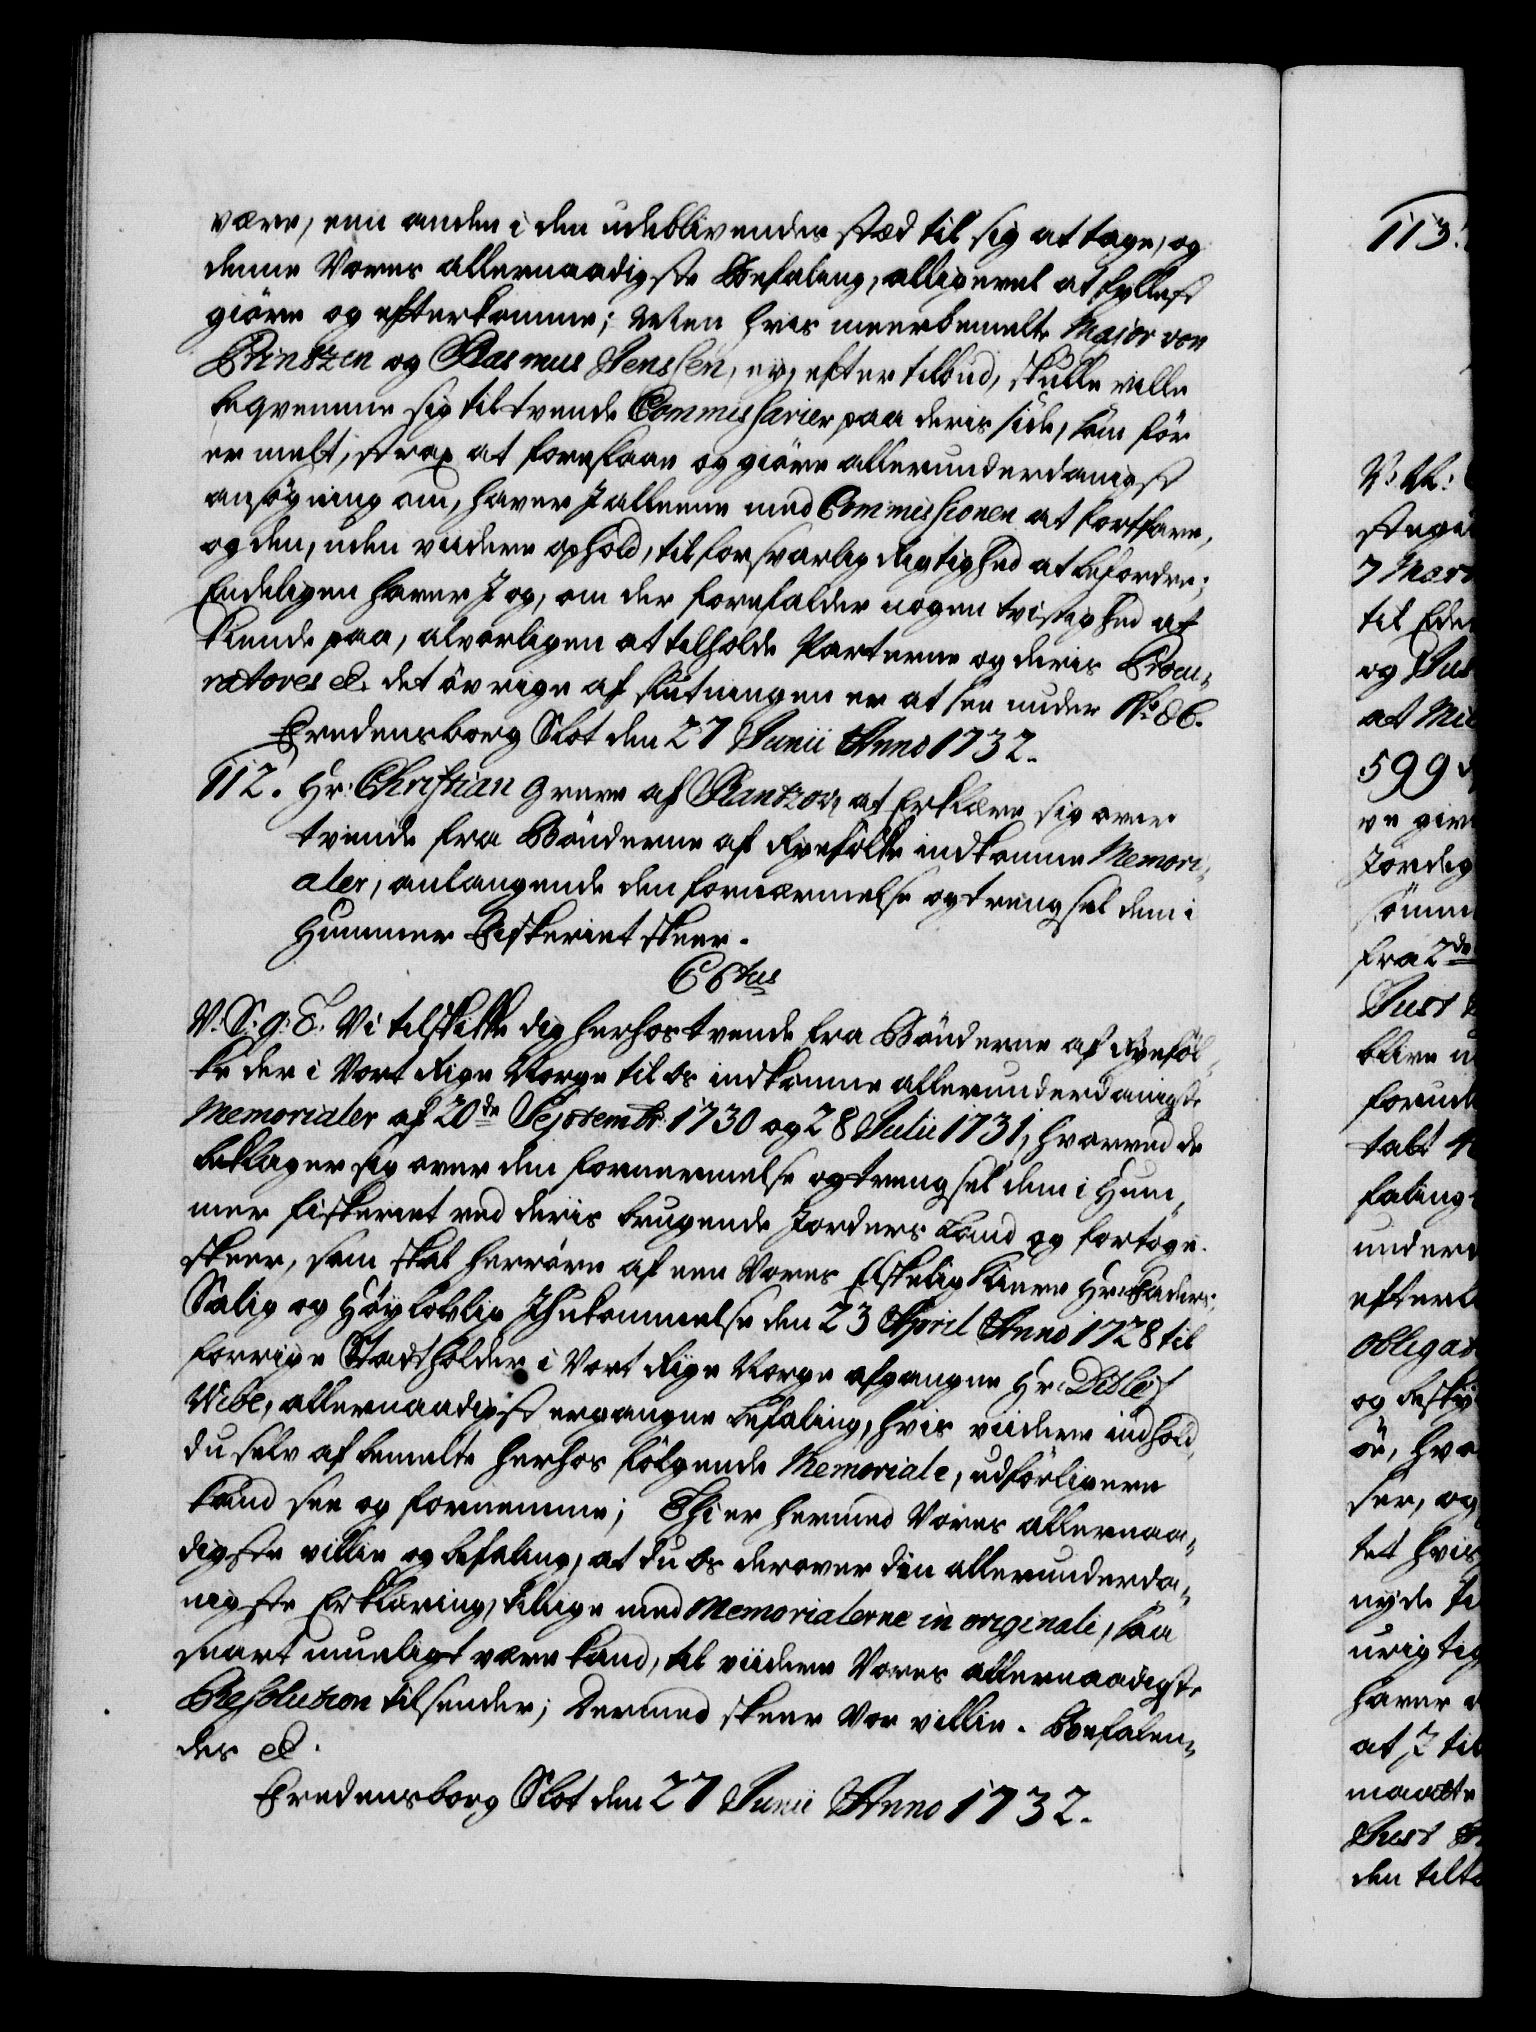 være, een anden i den udeblivendes stæd til sig at tage, og
denne Vores allernaadigste Befaling, alligevel at fyllest
giöre og efterkomme; Men hvis meerbemelte Major von
Printzen og Rasmus Jenssen, ey, efter tilbud, skulle ville
beqvemme sig til tvende Commissarier paa deris side, som för
er melt, strax at foreslaae og giöre allerunderdanigst
ansögning om, haver I alleene med Commissionen at fortfare,
og den, uden viidere ophold, til forsvarlig Rigtighed at befordre;
Endeligen haver I og, om der forefalder nogen tvistighed at
kiende paa, alvorligen at tilholde Parterne og deris Procu-
ratores &c. det övrige af slutningen er at see under No 86.
Fredensborg Slot den 27 Junii Anno 1732.
112. Hr: Christian Greve af Rantzow, at Erklære sig over
tvende fra Bönderne af Ryefölke indkomne Memori-
aler, anlangende den fornærmelse og trengsel dem i
Hummer Fiskeriet skeer.
C 6tus
V: S: g: T. Vi tilskikke dig herhos tvende fra Bönderne af Ryeföl-
ke der i Vort Rige Norge til os indkomne allerunderdanigste
Memorialer af 20de Septembr: 1730 og 28 Julii 1731, hvorved de
beklager sig over den fornermelse og trengsel dem i Hum-
mer fiskeriet ved deris brugende Jorders Land og fortöge
skeer, som skal herröre af een Vores Elskelig Kiere Hr: Faders,
Salig og Höylovlig Ihukommelse den 23 April Anno 1728 til
forrige Stadtholder i Vort Rige Norge afgangne Hr: Ditlef
Wibe, allernaadigst ergangne befaling, hvis viidere indhold,
du selv af bemelte herhos fölgende Memoriale, udförligere
kand see og fornemme; Thi er hermed Vores allernaa-
digste villie og befaling, at du os derover din allerunderda-
nigste Erklæring, tillige med Memorialerne in originali, saa
snart mueligt være kand, til viidere Vores allernaadigste
Resolution tilsender; Dermed skeer Vor villie. Befalen-
des &c.
Fredensborg Slot den 27 Junii Anno 1732.
113.
7 Mart
til Eder
og Jus
at
599
ve give
Jordeg
fra 2de
Just
blive
forund
tabt
faling
under
efterk
obligat
og
ö, hvo
ser, og
tet hvis
nyde
urigtig
haver
at I til
maatte
Just
den tilt